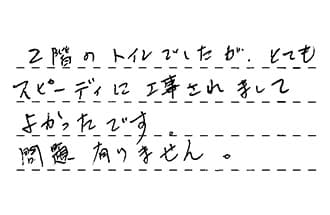 2階のトイレでしたが、とても
スピーディに工事されまして
よかったです。
問題有りません。